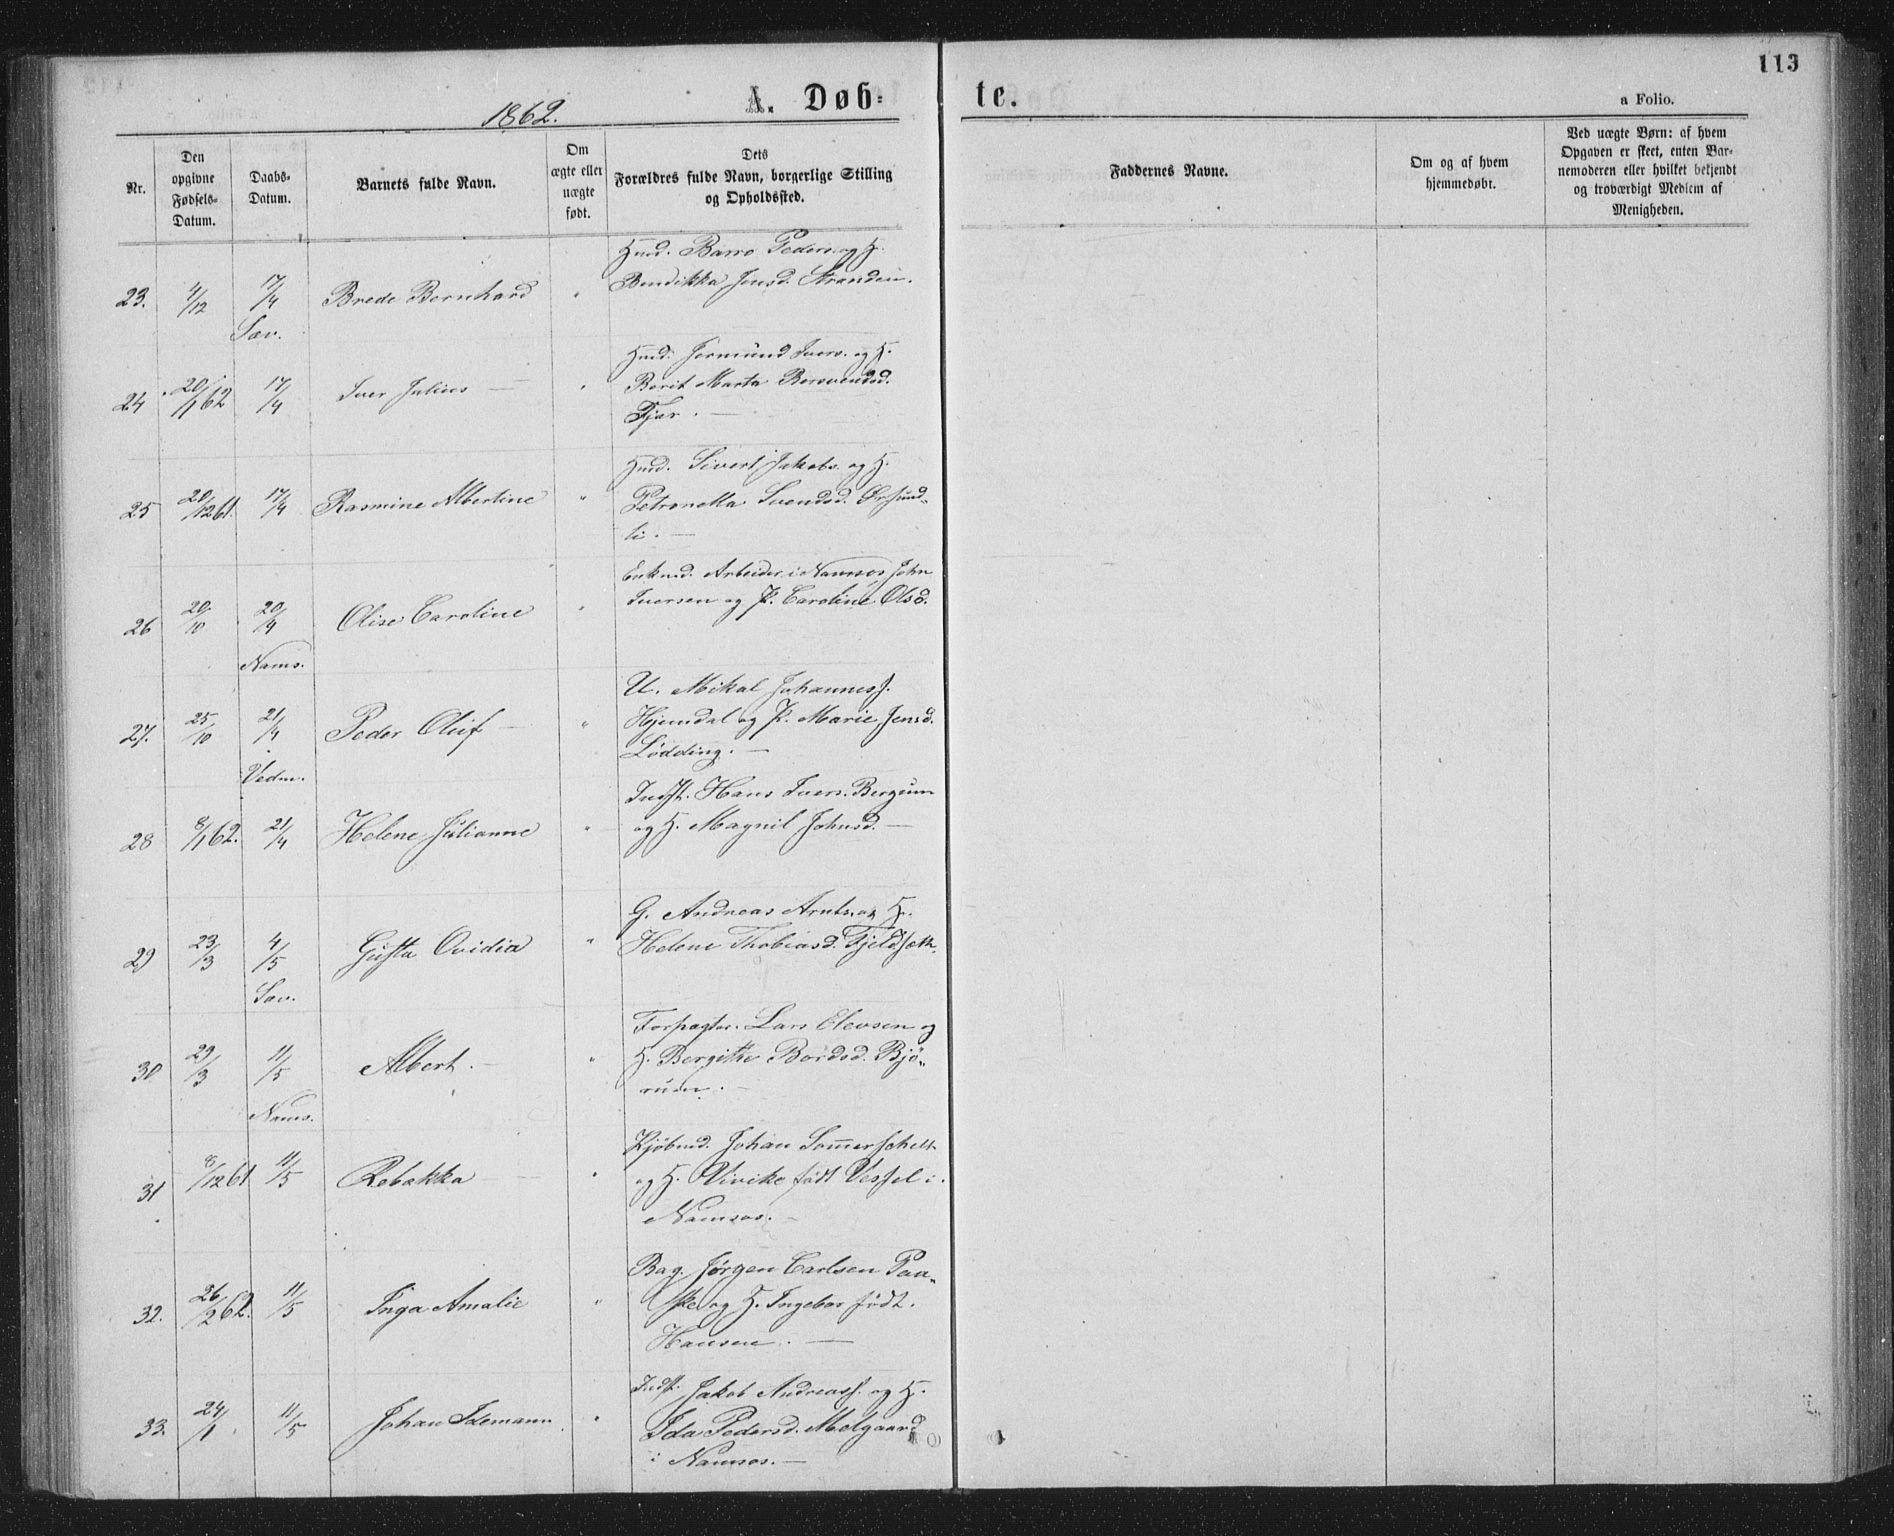 113
1862.
A. Døb-
te.
a Folio.
Nr.
Den opgivne Fødsels-Datum.
Daabs-Datum.
Barnets fulde Navn.
Om ægte eller uægte født.
Dets Forældres fulde Navn, borgerlige Stilling og Opholdssted.
Faddernes Navne.
Om og af hvem hjemmedøbt.
Ved uægte Børn: af hvem Opgaven er skeet, enten Barnemoderen eller hvilket bekjendt og troværdigt Medlem af Menigheden.
Hmd. Barro Peders. og H.
23. 4/12 17/4 Brede Bernhard " Bendikka Jensd. Stranden.
Sæv.
Hmd. Jormund Ivers. og H.
24 20/1 62 17/4 Iver Julius — " Berit Marta
Fjær. —
Hmd. Sivert Jakobs. og H.
25 20/12 61. 17/4 Rasmine Albertine " Petronella Svendsd. Ørsund-
li. —
Enkmd. Arbeider i Namsos John
26 20/10 20/4 Olise Caroline " Iversen og P. Caroline Olsd.
Nams.
U. Mikal Johanness.
27. 25/10 21/4 Peder Oluf — " Hjemdal og P. Marie Jensd.
Lødding. —
Vedm.
Indst. Hans Ivers. Bergum
28 8/1 62. 21/4 Helene Julianne " og H. Magnil Johnsd. —
G. Andreas Arnts. og H.
29 23/3 4/5 Gusta Ovidia " Helene Thobiasd. Fjeldsæth.
Sæv.
Forpagter. Lars Elevsen og
30 29/3 11/5 Albert. — " H. Bergithe Bordsd. Bjø-
rum. —
Nams.
Kjøbmd. Johan Sommerschelt
31 8/12 61 11/5 Rebakka — " og H. Vivike født Vessel i
Namsos. —
Bag. Jørgen Carlsen Paa-
32. 26/2 62. 11/5 Inga Amalie " ske og H. Ingebor født
Hansen. —
Indst. Jakob Andreass. og H.
33. 24/1 11/5 Johan Idemann " Ida Pedersd. Melgaard
i Namsos. —